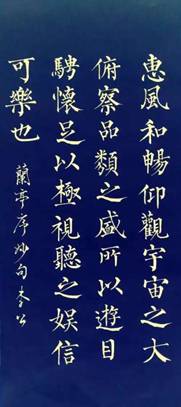 惠風和暢仰觀宇宙之大
俯察品類之盛所以遊目
騁懷足以極視聽之娛信
可樂也
蘭亭序妙句李公